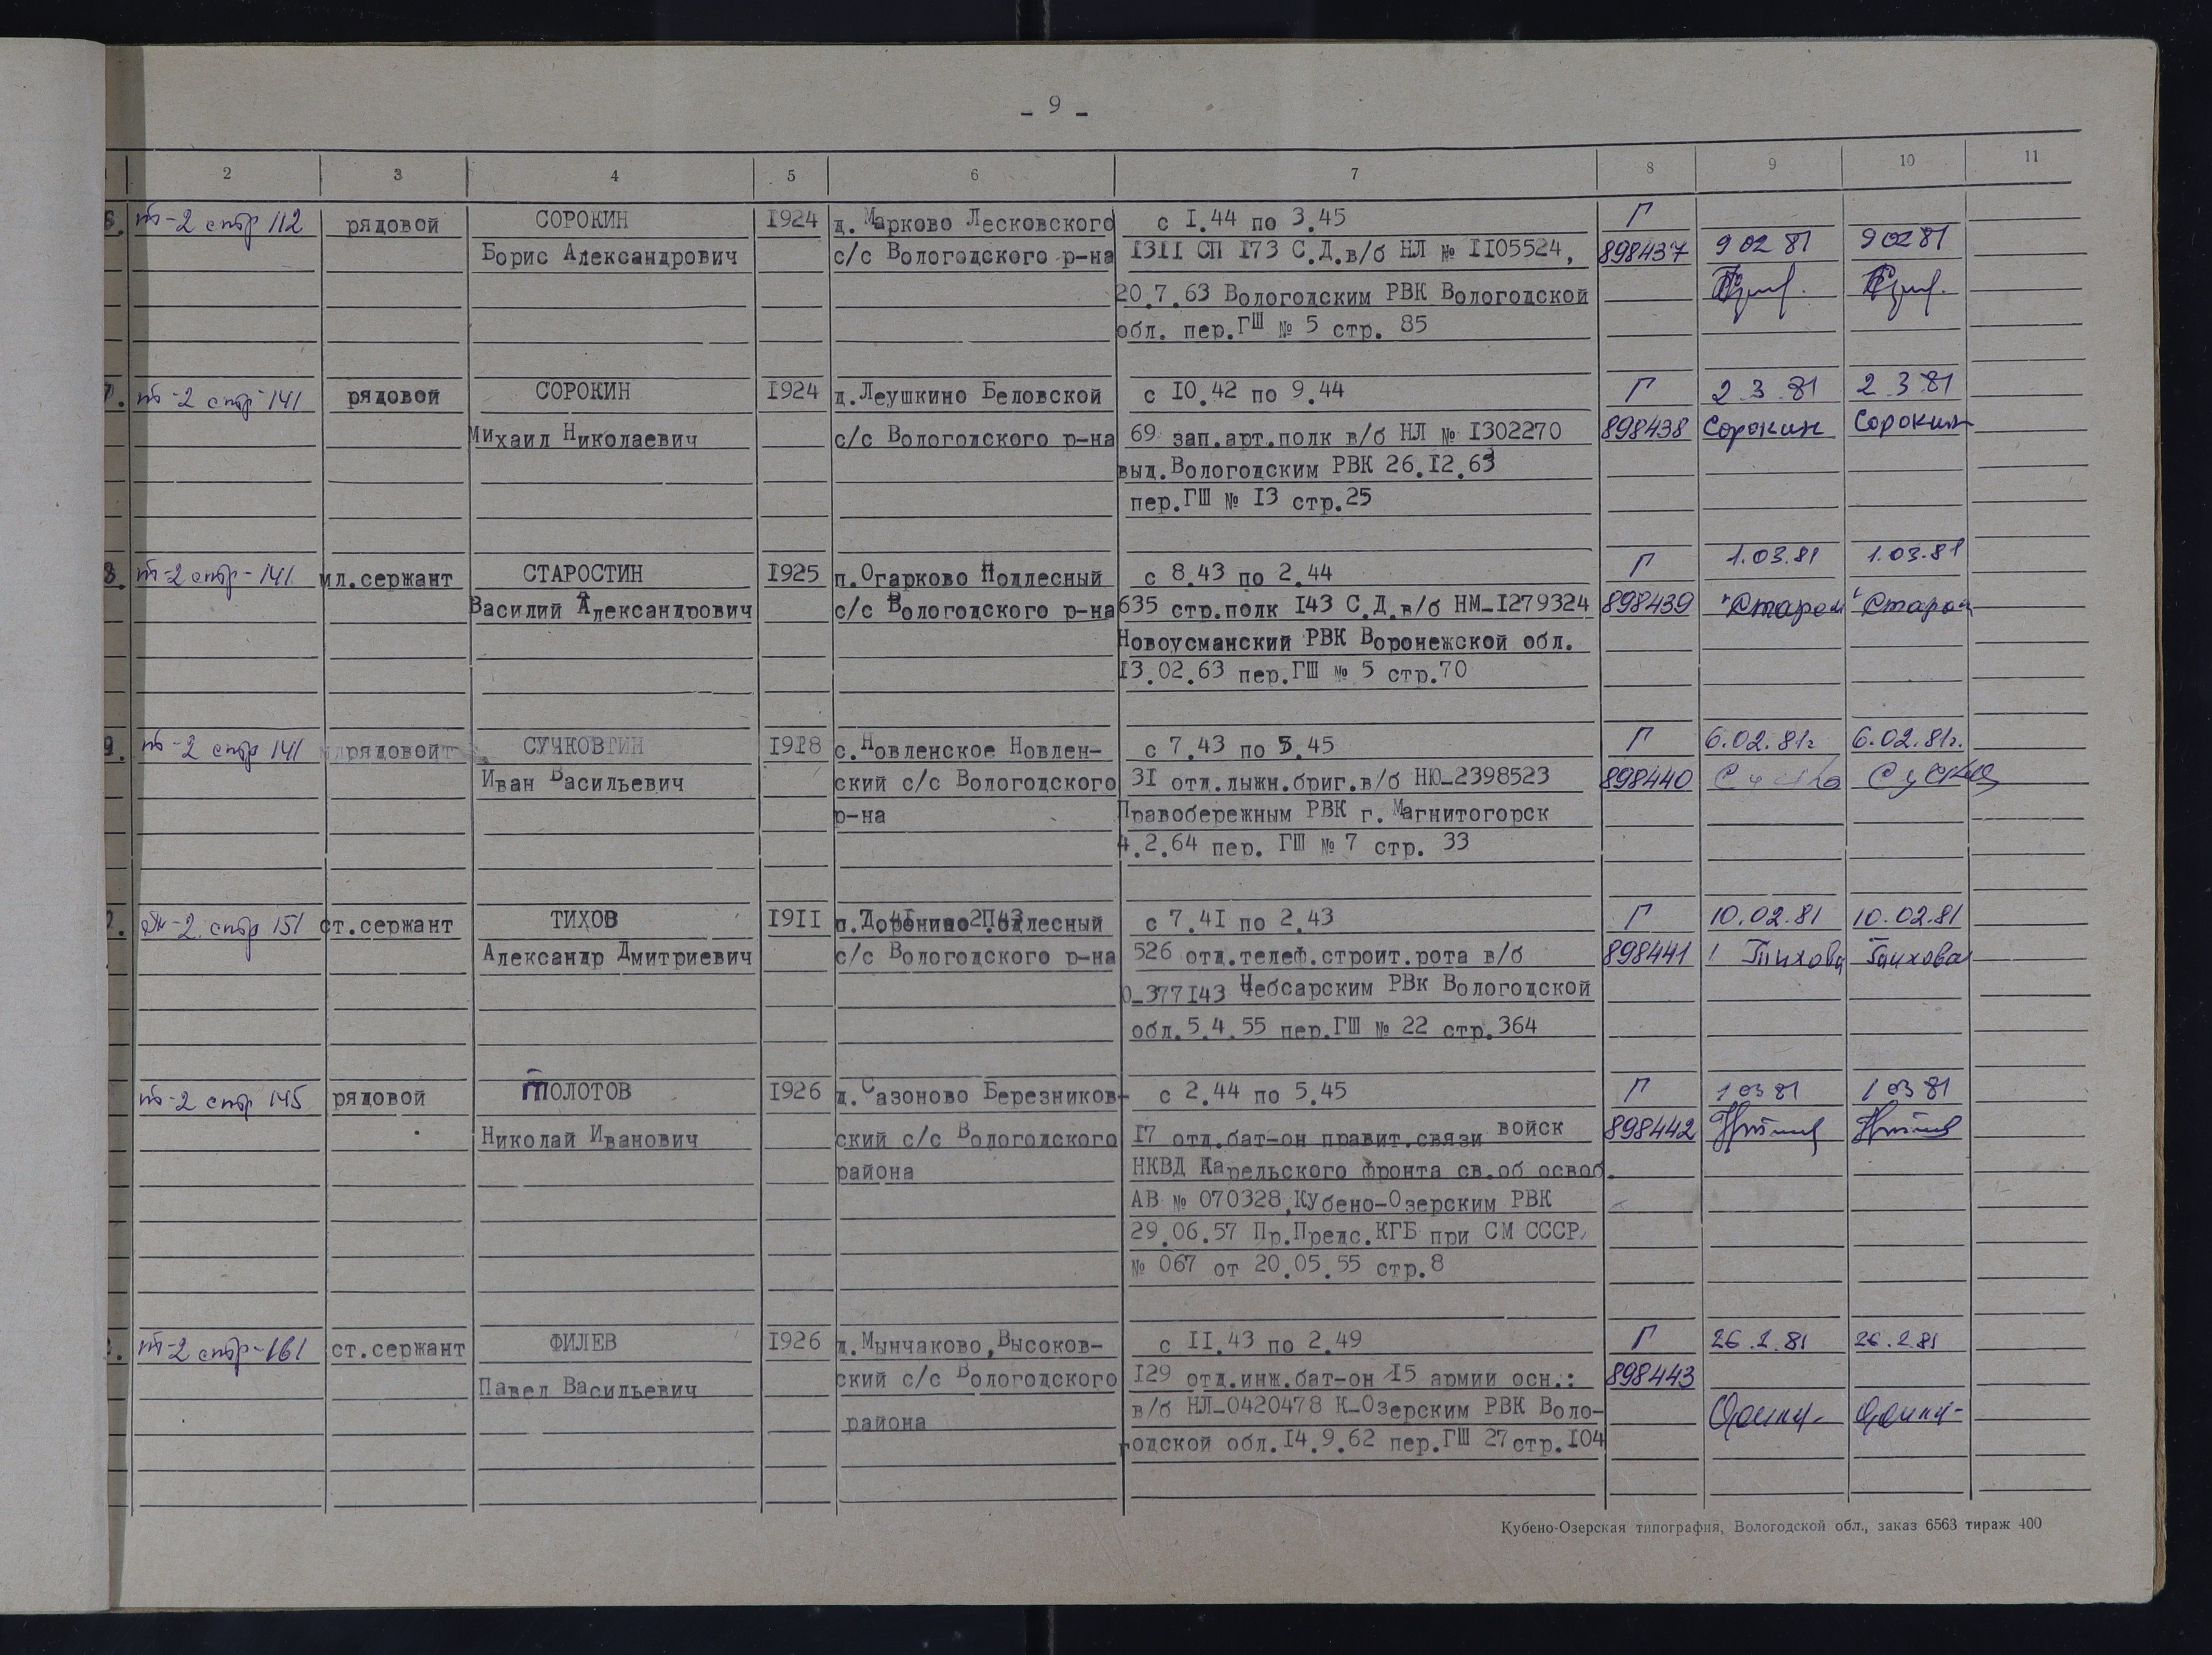 - 9 -
2 3 4 5 6 7 8 9 10 11
6. т-2 стр 112 рядовой СОРОКИН 1924 д. Марково Лесковского с 1.44 по 3.45 Г
Борис Александрович с/с Вологодского р-на 1311 СП 173 С.Д.в/б НЛ № 1105524, 898437 9 02 81 9 02 81
20.7.63 Вологодским РВК Вологодской
обл. пер.ГШ № 5 стр. 85
7. т-2 стр-141 рядовой СОРОКИН 1924 д.Леушкино Беловской с 10.42 по 9.44 Г 2.3.81 2.3.81
Михаил Николаевич с/с Вологодского р-на 69 зап.арт.полк в/б НЛ № 1302270 898438 Сорокин Сорокин
выд.Вологодским РВК 26.12.63
пер.ГШ № 13 стр.25
8. т-2 стр-141 мл.сержант СТАРОСТИН 1925 п.Огарково Подлесный с 8.43 по 2.44 Г 1.03.81 1.03.81
Василий Александрович с/с Вологодского р-на 635 стр.полк 143 С.Д.в/б НМ-1279324 898439
Новоусманский РВК Воронежской обл.
13.02.63 пер.ГШ № 5 стр.70
9. т-2 стр 141 рядовой СУЧКОВ 1918 с.Новленское Новлен- с 7.43 по 5.45 Г 6.02.81г 6.02.81г.
Иван Васильевич ский с/с Вологодского 31 отд.лыжн.бриг.в/б НЮ-2398523 898440
р-на Правобережным РВК г. Магнитогорск
4.2.64 пер. ГШ № 7 стр. 33
т-2 стр 151 ст.сержант ТИХОВ 1911 Доронино Подлесный с 7.41 по 2.43 Г 10.02.81 10.02.81
Александр Дмитриевич с/с Вологодского р-на 526 отд.телеф.строит.рота в/б 898441 Тихова Тихова
0-377143 Чебсарским РВк Вологодской
обл.5.4.55 пер.ГШ № 22 стр.364
т-2 стр 145 рядовой ТОЛОТОВ 1926 д.Сазоново Березников- с 2.44 по 5.45 Г 1 03 81 1 03 81
Николай Иванович ский с/с Вологодского 17 отд.бат-он правит.связи войск 898442
района НКВД Карельского фронта св.об освоб.
АВ № 070328,Кубено-Озерским РВК
29.06.57 Пр.Предс.КГБ при СМ СССР
№ 067 от 20.05.55 стр.8
т-2 стр-161 ст.сержант ФИЛЕВ 1926 д.Мынчаково,Высоков- с 11.43 по 2.49 Г 26.2.81 26.2.81
Павел Васильевич ский с/с Вологодского 129 отд.инж.бат-он 15 армии осн.: 898443
района в/б НЛ-0420478 К-Озерским РВК Воло-
годской обл.14.9.62 пер.ГШ 27стр.104
Кубено-Озерская типография, Вологодской обл., заказ 6563 тираж 400